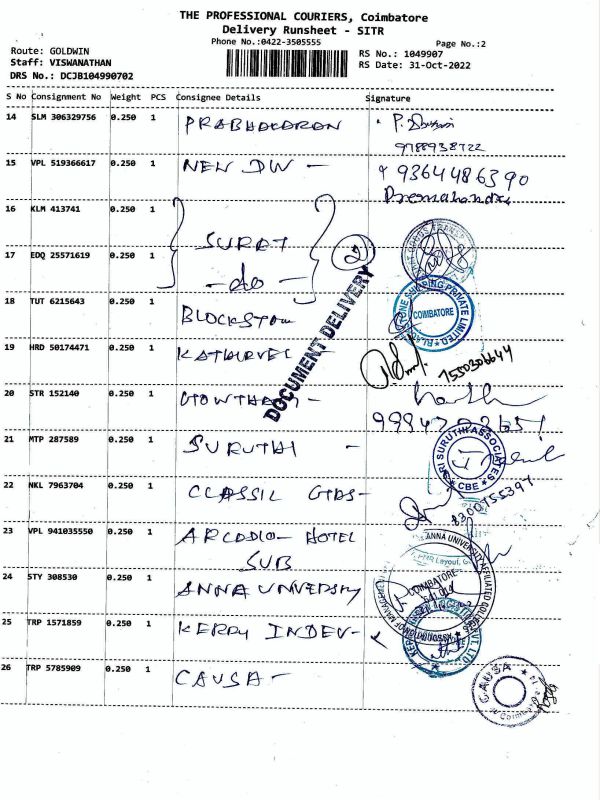 THE PROFESSIONAL COURIERS, Coimbatore
Delivery Runsheet - SITR
Phone No.:0422-3505555
Page No.:2
Route: GOLDWIN
RS No.: 1049907
Staff: VISWANATHAN
RS Date: 31-Oct-2022
DRS No.: DCJB104990702
S No Consignment No Weight PCS Consignee Details Signature
14 SLM 306329756 0.250 1 PRABHAKARAN
9788938722
15 VPL 519366617 0.250 1 NEW DW - 9364486390
16 KLM 413741 0.250 1 SURAT
2
17 EDQ 25571619 0.250 1 - do -
DOCUMENT DELIVERY
18 TUT 6215643 0.250 1 BLOCKSTON
COIMBATORE
19 HRD 50174471 0.250 1 KATHIRVEL - 7550306644
20 STR 152140 0.250 1 GOWTHAM -
21 MTP 287589 0.250 1 SURUTHI -
SRI SURUTHI ASSOCIATES
CBE
22 NKL 7963704 0.250 1 CLASSIC
8300755397
23 VPL 941035550 0.250 1 ARCADIO - HOTEL
SUB
24 STY 308530 0.250 1 ANNA UNIVERSITY
COIMBATORE
25 TRP 1571859 0.250 1 KERRY INDEV -
26 TRP 5785909 0.250 1 CAUSA -
CAUSA